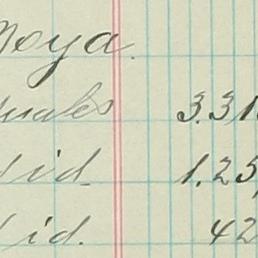 Moya.
uales 3.31
id 1.25
id. 42